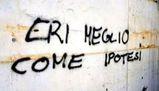 ERI MEGLIO
COME IPOTESI